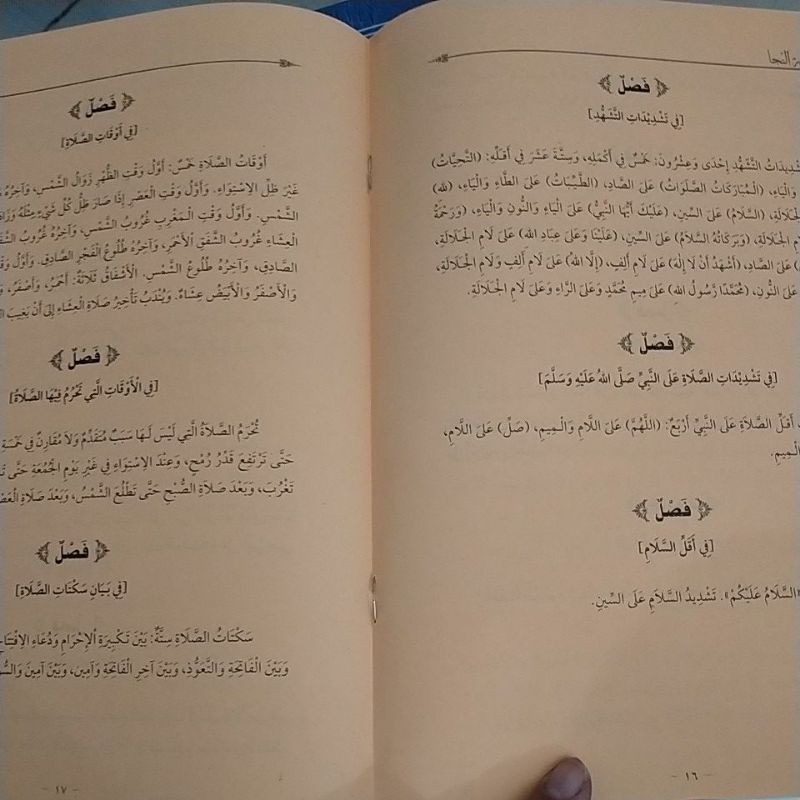 ـة النجا
فَصْلٌ
[فِي تَشْدِيدَاتِ التَّشَهُّدِ]
ـشْدِيدَاتُ التَّشَهُّدِ إِحْدَى وَعِشْرُونَ: خَمْسٌ فِي أَكْمَلِهِ، وَسِتَّةَ عَشَرَ فِي أَقَلِّهِ: (التَّحِيَّاتُ)
وَالْيَاءِ، (الْـمُبَارَكَاتُ الصَّلَوَاتُ) عَلَى الصَّادِ، (الطَّيِّبَاتُ) عَلَى الطَّاءِ وَالْيَاءِ، (لِلهِ)
الْجَلَالَةِ، (السَّلَامُ) عَلَى السِّينِ، (عَلَيْكَ أَيُّهَا النَّبِيُّ) عَلَى الْيَاءِ وَالنُّونِ وَالْيَاءِ، (وَرَحْمَةُ
الْجَلَالَةِ، (وَبَرَكَاتُهُ السَّلَامُ) عَلَى السِّينِ، (عَلَيْنَا وَعَلَى عِبَادِ اللهِ) عَلَى لَامِ الْجَلَالَةِ،
) عَلَى الصَّادِ، (أَشْهَدُ أَنْ لَا إِلَهَ) عَلَى لَامِ أَلِفٍ، (إِلَّا اللهُ) عَلَى لَامِ أَلِفٍ وَلَامِ الْجَلَالَةِ،
عَلَى النُّونِ، (مُحَمَّدًا رَسُولُ اللهِ) عَلَى مِيمِ مُحَمَّدٍ وَعَلَى الرَّاءِ وَعَلَى لَامِ الْجَلَالَةِ.
فَصْلٌ
[فِي تَشْدِيدَاتِ الصَّلَاةِ عَلَى النَّبِيِّ صَلَّى اللهُ عَلَيْهِ وَسَلَّمَ]
أَقَلِّ الصَّلَاةِ عَلَى النَّبِيِّ أَرْبَعٌ: (اللَّهُمَّ) عَلَى اللَّامِ وَالْـمِيمِ، (صَلِّ) عَلَى اللَّامِ،
الْـمِيمِ.
فَصْلٌ
[فِي أَقَلِّ السَّلَامِ]
«السَّلَامُ عَلَيْكُمْ». تَشْدِيدُ السَّلَامِ عَلَى السِّينِ.
- ١٦ -
فَصْلٌ
[فِي أَوْقَاتِ الصَّلَاةِ]
أَوْقَاتُ الصَّلَاةِ خَمْسٌ: أَوَّلُ وَقْتِ الظُّهْرِ زَوَالُ الشَّمْسِ، وَآخِرُهُ
غَيْرَ ظِلِّ الِاسْتِوَاءِ. وَأَوَّلُ وَقْتِ الْعَصْرِ إِذَا صَارَ ظِلُّ كُلِّ شَيْءٍ مِثْلَهُ وَزَا
الشَّمْسِ. وَأَوَّلُ وَقْتِ الْـمَغْرِبِ غُرُوبُ الشَّمْسِ، وَآخِرُهُ غُرُوبُ الشَّفَـ
الْعِشَاءِ غُرُوبُ الشَّفَقِ الْأَحْمَرِ، وَآخِرُهُ طُلُوعُ الْفَجْرِ الصَّادِقِ. وَأَوَّلُ وَقْـ
الصَّادِقِ، وَآخِرُهُ طُلُوعُ الشَّمْسِ. الْأَشْفَاقُ ثَلَاثَةٌ: أَحْمَرُ، وَأَصْفَرُ،
وَالْأَصْفَرُ وَالْأَبْيَضُ عِشَاءٌ. وَيُنْدَبُ تَأْخِيرُ صَلَاةِ الْعِشَاءِ إِلَى أَنْ يَغِيبَ
فَصْلٌ
[فِي الْأَوْقَاتِ الَّتِي تَحْرُمُ فِيْهَا الصَّلَاةُ]
تَحْرُمُ الصَّلَاةُ الَّتِي لَيْسَ لَـهَا سَبَبٌ مُتَقَدِّمٌ وَلَا مُقَارِنٌ فِي خَمْسَةِ
حَتَّى تَرْتَفِعَ قَدْرَ رُمْحٍ، وَعِنْدَ الِاسْتِوَاءِ فِي غَيْرِ يَوْمِ الْجُمُعَةِ حَتَّى
تَغْرُبَ، وَبَعْدَ صَلَاةِ الصُّبْحِ حَتَّى تَطْلُعَ الشَّمْسُ، وَبَعْدَ صَلَاةِ الْعَصْـ
فَصْلٌ
[فِي بَيَانِ سَكَتَاتِ الصَّلَاةِ]
سَكَتَاتُ الصَّلَاةِ سِتَّةٌ: بَيْنَ تَكْبِيرَةِ الْإِحْرَامِ وَدُعَاءِ الِافْتِتَاحِ
وَبَيْنَ الْفَاتِحَةِ وَالتَّعَوُّذِ، وَبَيْنَ آخِرِ الْفَاتِحَةِ وَآمِين، وَبَيْنَ آمِينَ وَالسُّـ
- ١٧ -